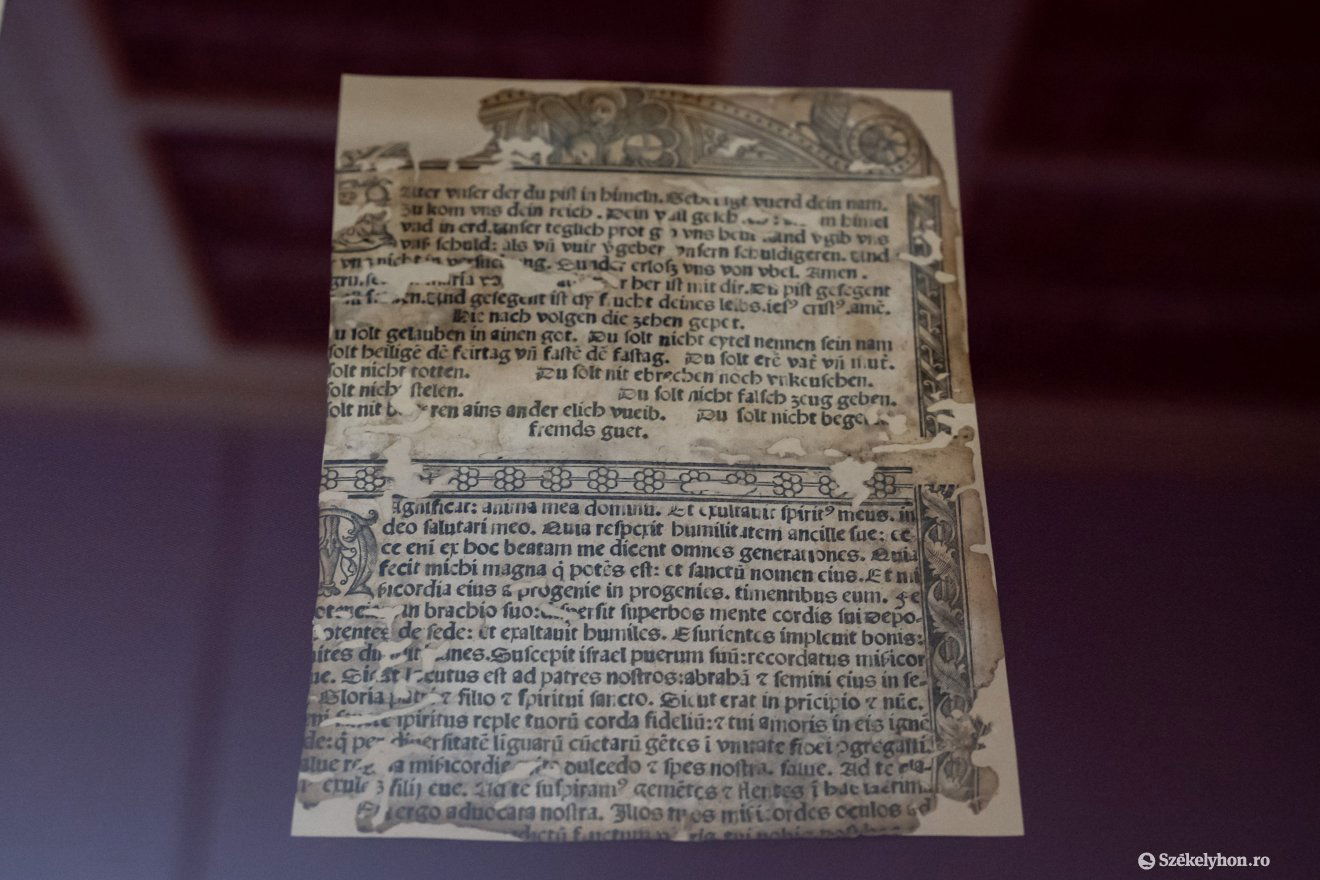 vnser der du pist in himeln. vuerd dein nam.
zu kom vns dein reich. Dein m himel
vnd in erd. vnser teglich prot vns vnd vgib vns
schuld: als vñ vuir ṽgeber vnsern schuldigeren. vnd
nicht in Sunder erlosz vns von vbel. Amen.
ber ist mit dir. Du pist gesegent
vnd gesegent ist dy frucht deines leibs. iesꝰ cristꝰ. amē.
Die nach volgen die zehen gepet.
u solt gelauben in ainen got. Du solt nicht eytel nennen sein nam
solt heiligē dē feirtag vñ fastē dē fastag. Du solt erē vñ
solt nicht totten. Du solt nit ebrechen noch vnkeuschen.
solt nich stelen. Du solt nicht falsch zeug geben.
solt nit ren ains ander elich vueib. Du solt nicht bege
fremds guet.
Magnificat: anima mea dominū. Et exultauit spiritꝰ meus. in
deo salutari meo. Quia respexit humilitatem ancille sue: ec
ce eni ex hoc beatam me dicent omnes generationes. Quia
fecit michi magna q̄ potēs est: et sanctū nomen eius. Et mi
sericordia eius a progenie in progenies. timentibus eum. Fe
in brachio suo: dispersit superbos mente cordis sui Depo-
potentes de sede: et exaltauit humiles. Esurientes impleuit bonis:
Suscepit israel puerum suū: recordatus misicor
Sicut locutus est ad patres nostros: abrahā ⁊ semini eius in se-
Gloria patri ⁊ filio ⁊ spiritui sancto. Sicut erat in pricipio ⁊ nūc.
spiritus reple tuorū corda fideliū: ⁊ tui amoris in eis ignē
de: q̄ per diuersitatē liguarū cūctarū gētes i vnitate fidei ꝯgregasti.
misericordie dulcedo ⁊ spes nostra. salue. Ad te cla-
exules filij eue. Ad te suspiramꝰ gemētes ⁊ flentes i hac lacrim
ergo aduocata nostra. Illos tuos misicordes oculos ad
fructum
Székelyhon.ro